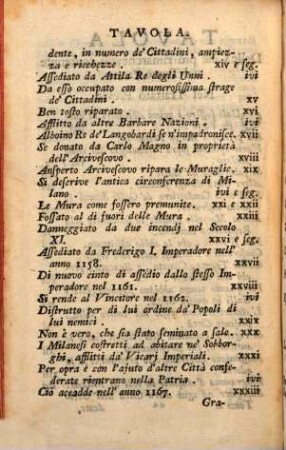 TAVOLA.
dente, in numero de' Cittadini, ampiez-
za e ricchezze. xiv e seg.
Assediato da Attila Re degli Unni. ivi
Da esso occupato con numerosissima strage
de' Cittadini. xv
Ben tosto riparato. xvi
Afflitto da altre Barbare Nazioni. ivi
Alboino Re de' Langobardi se n'impadronisce. xvii
Se donato da Carlo Magno in proprietà
dell' Arcivescovo. xviii
Ansperto Arcivescovo ripara le Muraglie. xix
Si descrive l'antica circonferenza di Mi-
lano. ivi e seg.
Le Mura come fossero premunite. xxi e xxii
Fossato al di fuori delle Mura. xxiii
Danneggiato da due incendj nel Secolo
XI. xxvi e seg.
Assediato da Frederigo I. Imperadore nell'
anno 1158. xxvii
Di nuovo cinto di assedio dallo stesso Im-
peradore nel 1161. xxviii
Si rende al Vincitore nel 1162. ivi
Distrutto per di lui ordine da' Popoli di
lui nemici. xxix
Non è vero, che sia stato seminato a sale. xxx
I Milanesi costretti ad abitare ne' Sobbor-
ghi, afflitti da' Vicarj Imperiali. xxxi
Per opra e con l'ajuto d'altre Città confe-
derate rientrano nella Patria. ivi
Ciò accadde nell' anno 1167. xxxiii
Gra-